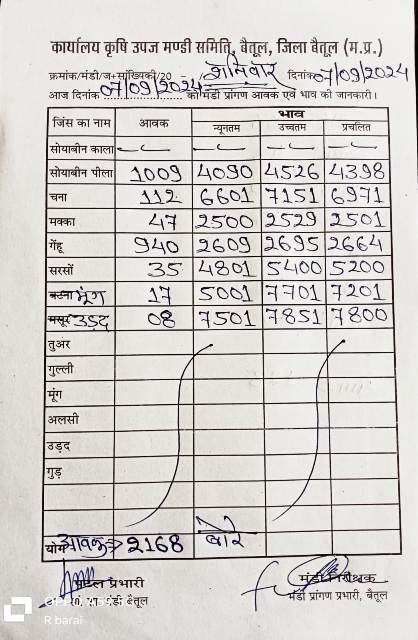 कार्यालय कृषि उपज मण्डी समिति, बैतूल, जिला बैतूल (म.प्र.)
क्रमांक/मंडी/ज+सांख्यिकी/20 - शनिवार दिनांक 07/09/2024
आज दिनांक 07/09/2024 को मंडी प्रांगण आवक एवं भाव की जानकारी।
जिंस का नाम आवक भाव
न्यूनतम उच्चतम प्रचलित
सोयाबीन काला
सोयाबीन पीला 1009 4090 4526 4398
चना 112 6601 7151 6971
मक्का 47 2500 2529 2501
गेंहू 940 2609 2695 2664
सरसों 35 4801 5400 5200
बटना मूंग 17 5001 7701 7201
मसूर उड़द 08 7501 7851 7800
तुअर
गुल्ली
मूंग
अलसी
उड़द
गुड़
योग आवक → 2168 बोरे
प्रभारी मंडी निरीक्षक
मंडी बैतूल मंडी प्रांगण प्रभारी, बैतूल
OPPO A59 5G
R barai